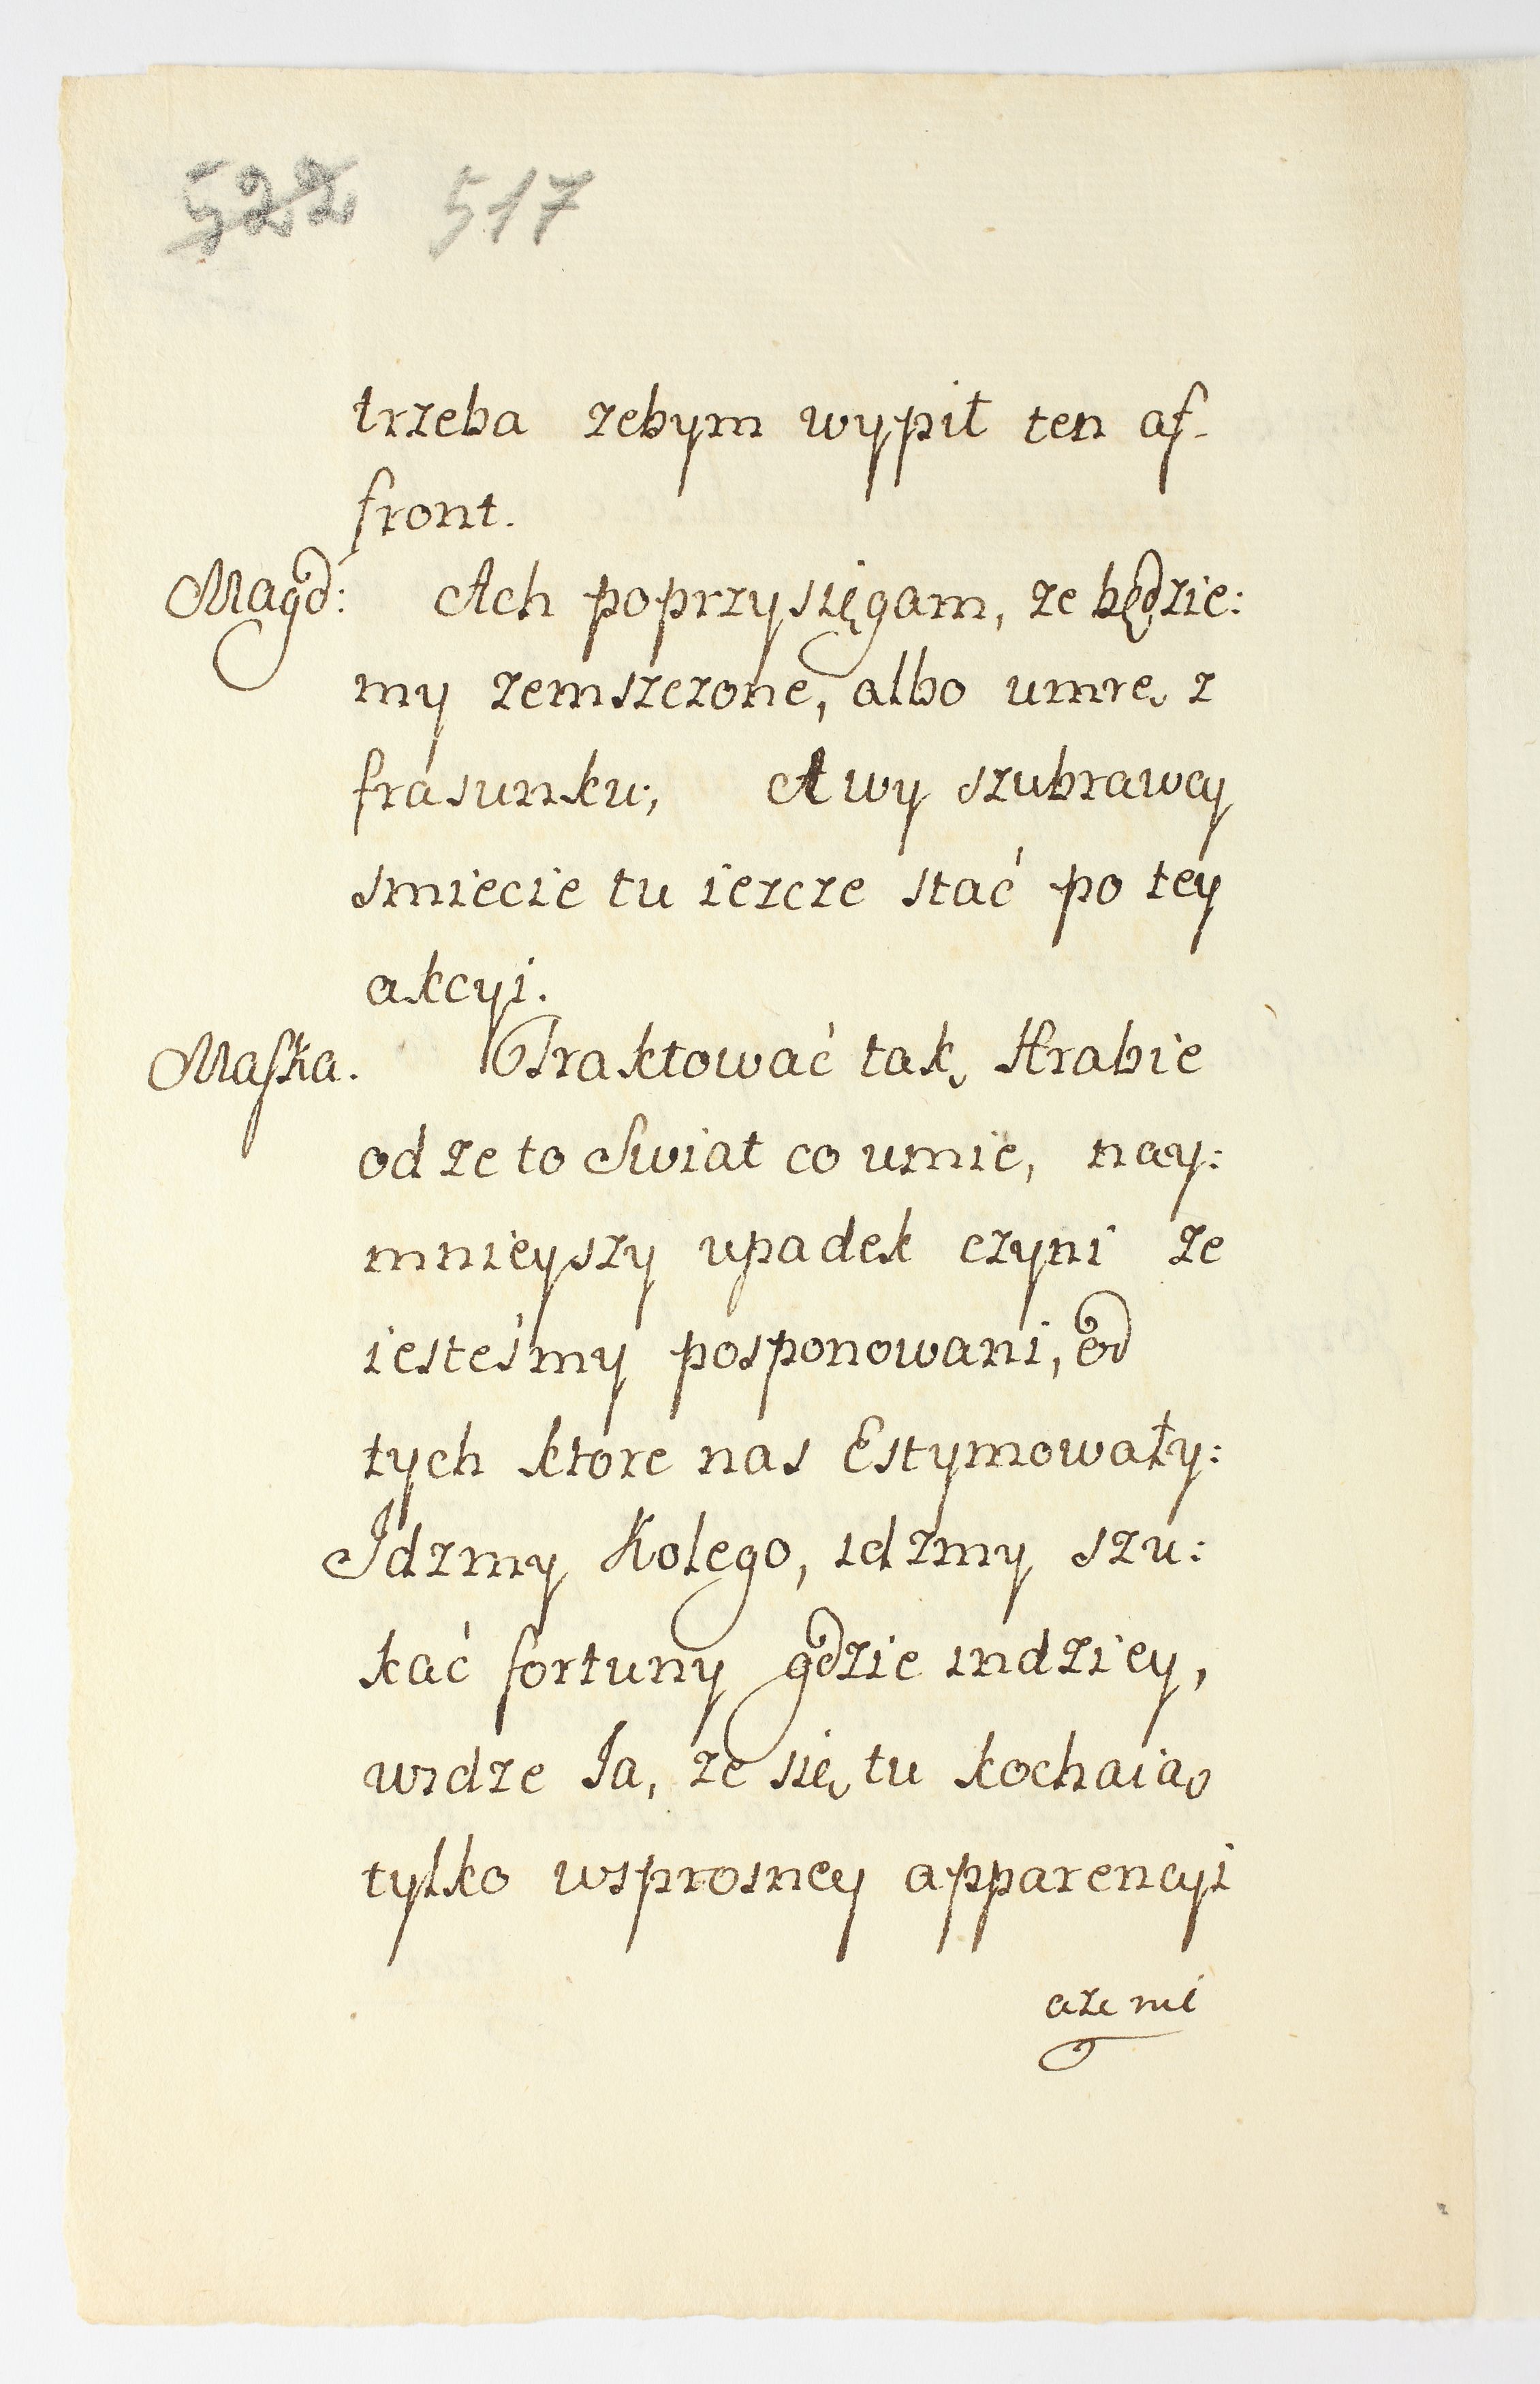 522 517
trzeba zebym wypił ten af-
front.
Magd: Ach poprzysięgam, ze będzie:
my zemszczone, albo umrę z
frasunku; A wy szubrawcy
smiecie tu ieszcze stać po tey
akcyi.
Maska. Traktować tak Hrabie
od ze to Swiat co umie, nay:
mnieyszy upadek czyni ze
iesteśmy posponowani, od
tych ktore nas Estymowały:
Idzmy Kolego, idzmy szu:
kać fortuny gdzie indziey,
widze Ja, ze się tu kochaią
tylko wsprosney apparencyi
aże nie